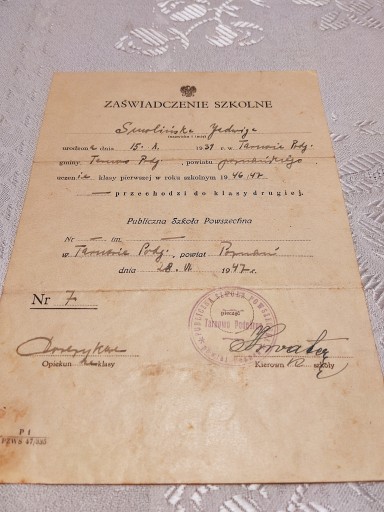 ZAŚWIADCZENIE SZKOLNE
Smolińska Jadwiga
(nazwisko i imię)
urodzona dnia 15. X. 1939 r. w Tarnowie Podg.
gminy Tarnowo Podg., powiatu poznańskiego,
uczenica klasy pierwszej w roku szkolnym 1946/47
— przechodzi do klasy drugiej.
Publiczna Szkoła Powszechna
Nr — im. —
w Tarnowie Podg., powiat Poznań
dnia 28. VI. 1947 r.
Nr 7
PUBLICZNA SZKOŁA POWSZECHNA
pieczęć
Tarnowo Podgórne
Opiekun klasy
Kierown szkoły
P 1
PZWS 47/335